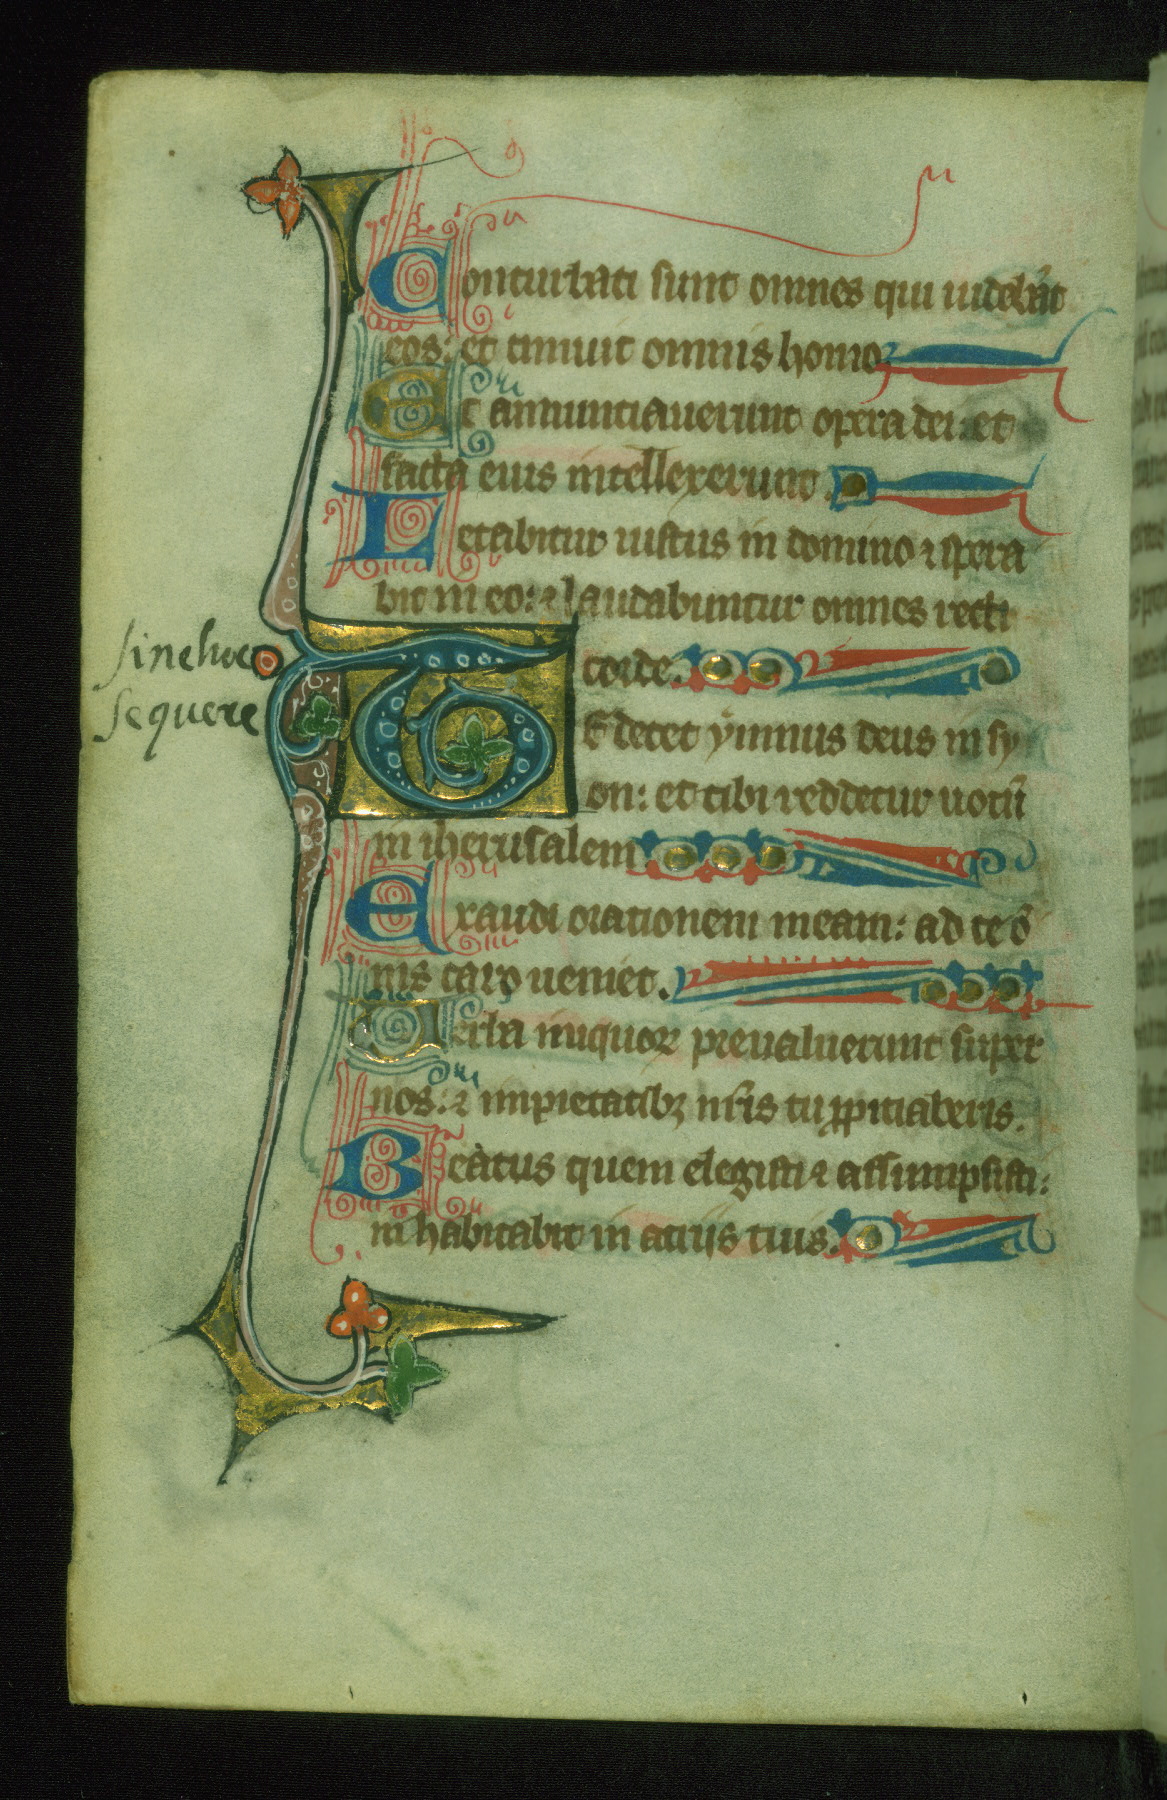 Conturbati sunt omnes qui uidebāt
eos: et timuit omnis homo
Et annuntiauerunt opera dei: et
facta eius intellexerunt.
Letabitur iustus in domino ⁊ spera
bit in eo: ⁊ laudabuntur omnes recti
corde.
sine hoc
sequere
TE decet ymnus deus in sy
on: et tibi reddetur uotū
in iherusalem
Exaudi orationem meam: ad te ō
nis caro ueniet.
Uerba iniquoꝝ preualuerunt super
nos: ⁊ impietatibꝫ nr̄is tu ꝓpitiaberis.
Beatus quem elegisti ⁊ assumpsisti:
inhabitabit in atriis tuis.